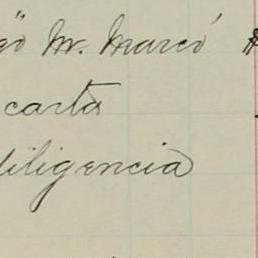 W. Marcó
carta
diligencia